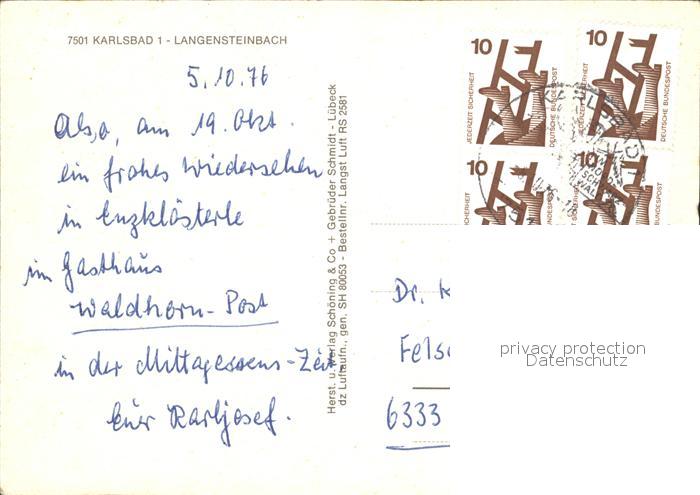 7501 KARLSBAD 1 - LANGENSTEINBACH
5.10.76
Also, am 19. Okt.
ein frohes Wiedersehen
in Enzklösterle
im Gasthaus
Waldhorn-Post
in der Mittagessens-Zeit
Euer Karljosef.
Herst. u. Verlag Schöning & Co + Gebrüder Schmidt - Lübeck
dz Luftaufn., gen. SH 80053 - Bestellnr. Langst Luft RS 2581
10
JEDERZEIT SICHERHEIT
DEUTSCHE BUNDESPOST
10
JEDERZEIT SICHERHEIT
DEUTSCHE BUNDESPOST
10
SICHERHEIT
BUNDESPOST
10
BUNDESPOST
Dr.
Fels
6333
privacy protection
Datenschutz